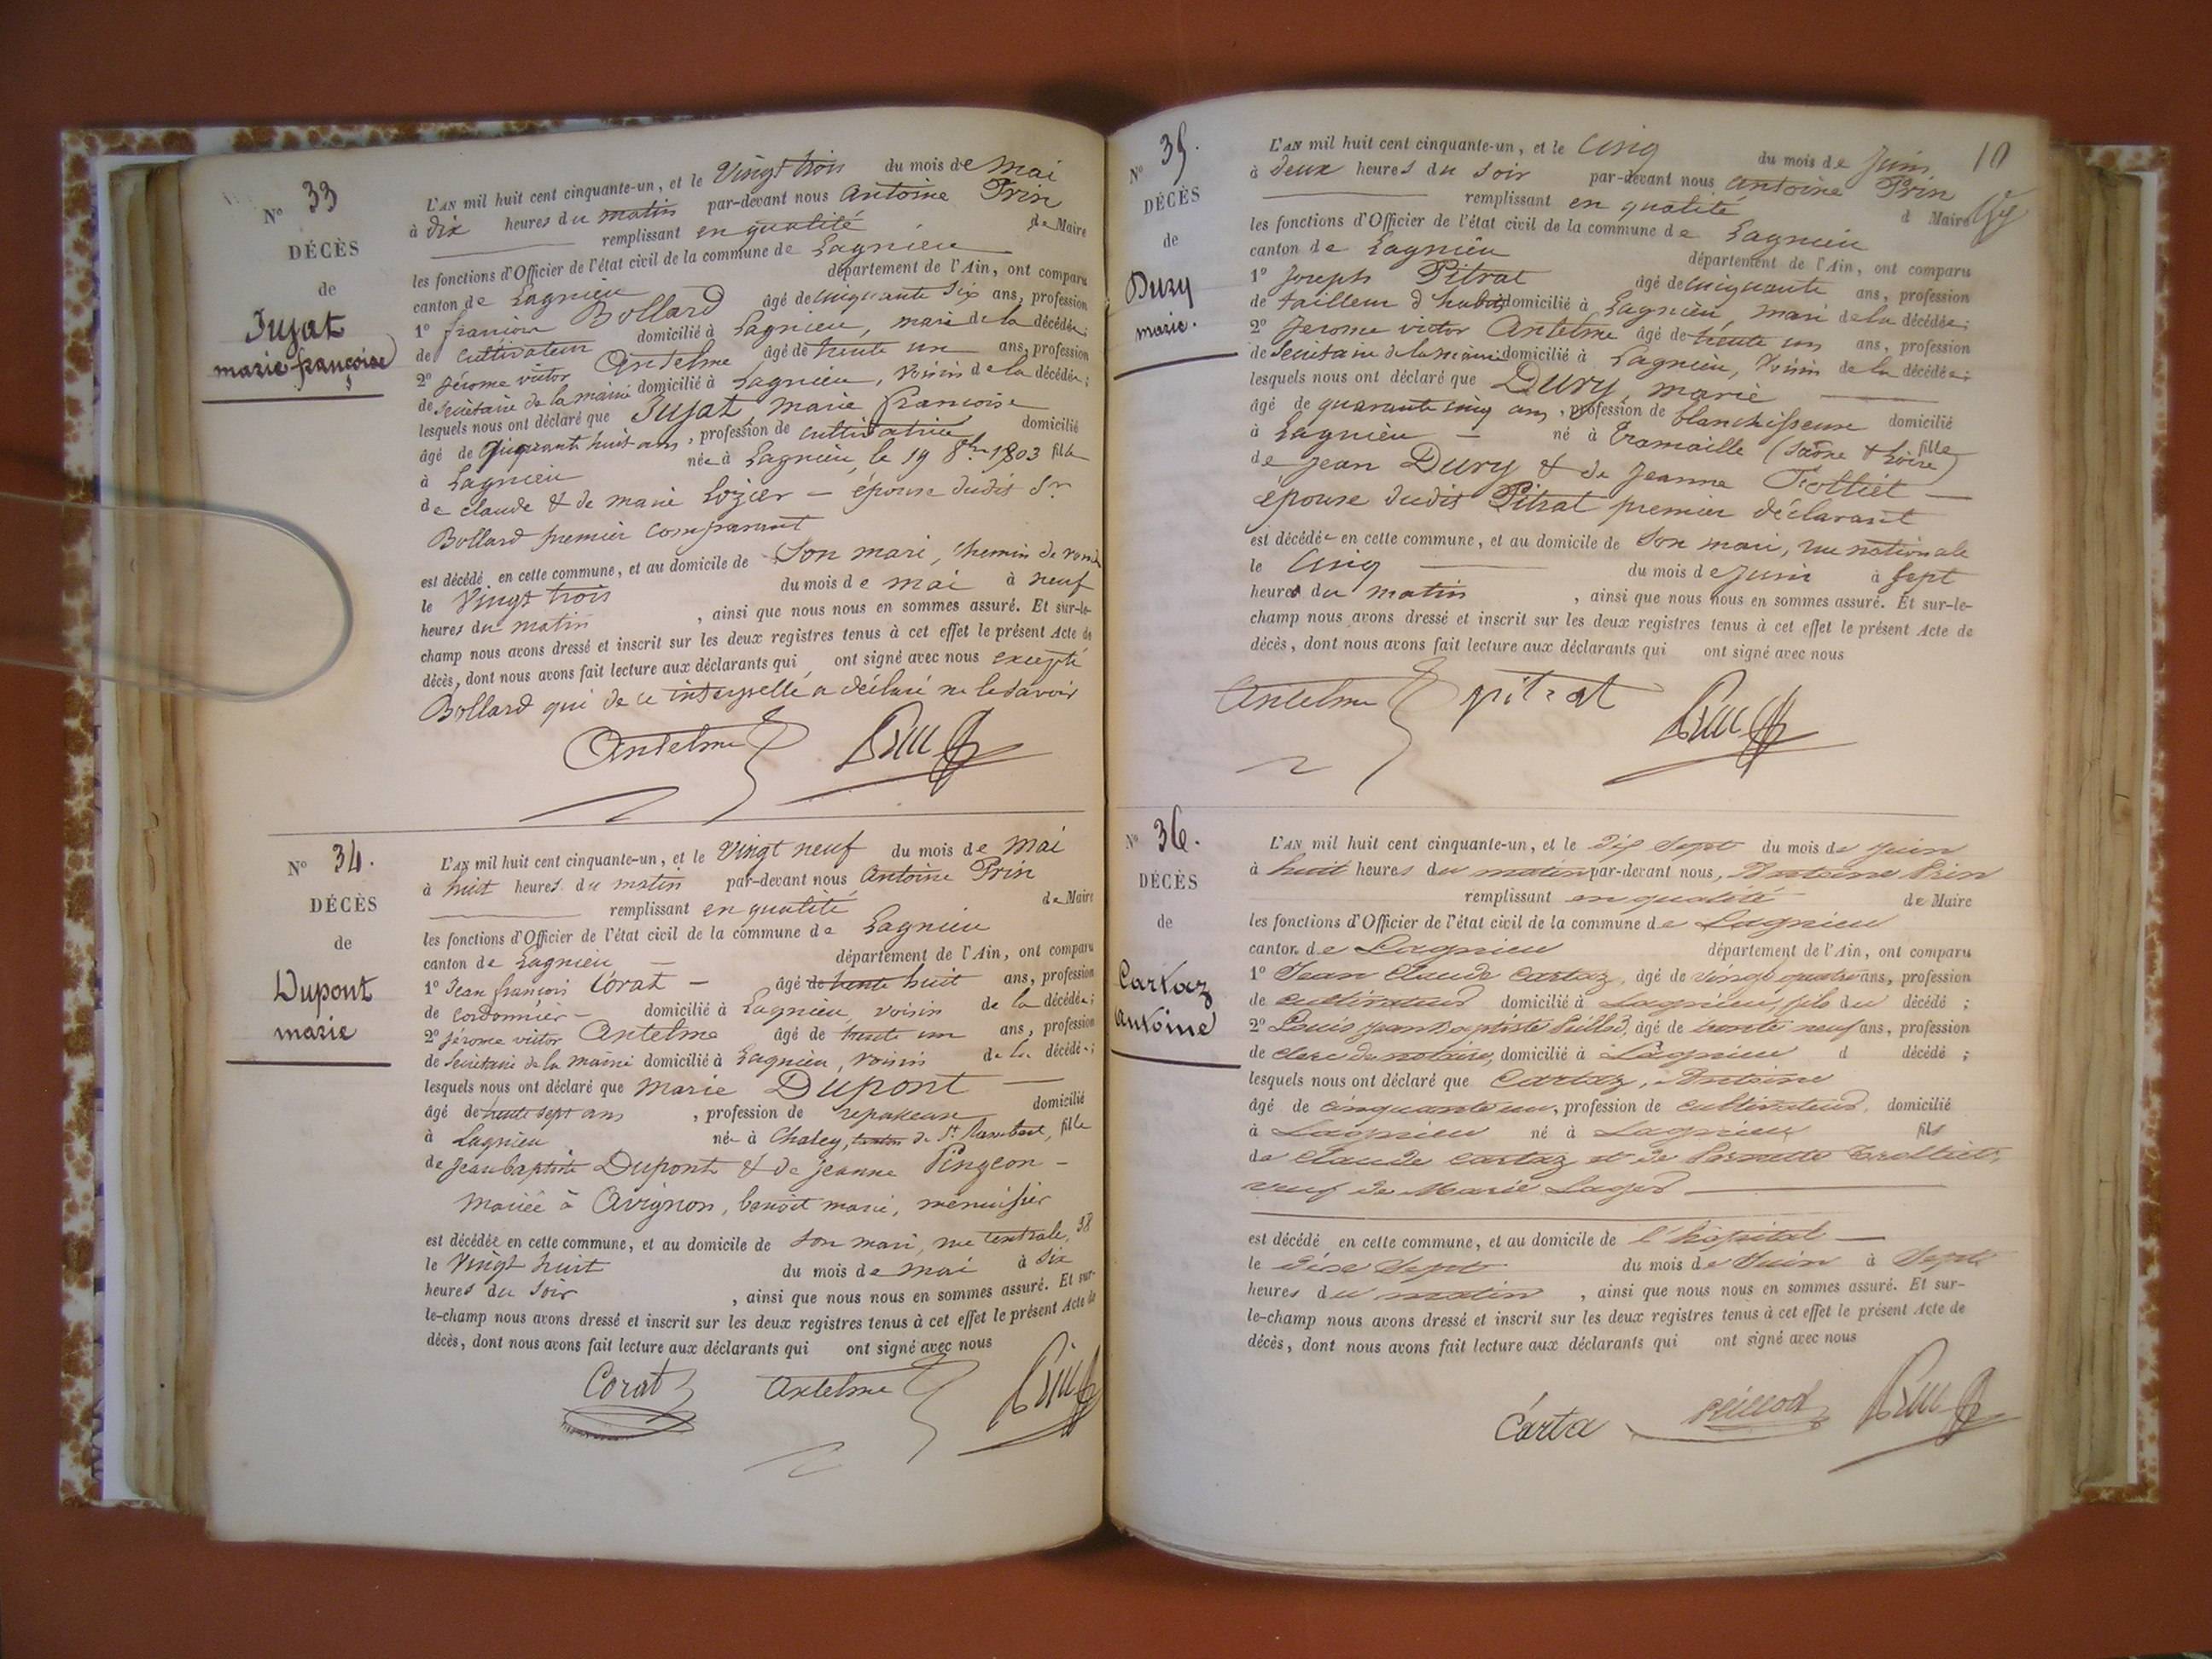 N° 33
DÉCÈS
de
Jujat
marie françoise
L'AN mil huit cent cinquante-un, et le Vingt trois du mois de mai
à dix heures du matin par-devant nous Antoine Prin
remplissant en qualité de Maire
les fonctions d'Officier de l'état civil de la commune de Lagnieu
canton de Lagnieu département de l'Ain, ont comparu
1° Bollard âgé de cinquante six ans, profession
de cultivateur domicilié à Lagnieu, mari de la décédée;
2° jérome victor Antelme âgé de trente un ans, profession
de secrétaire de la mairie domicilié à Lagnieu, voisin de la décédée;
lesquels nous ont déclaré que Jujat, marie francoise
âgé de huit ans, profession de cultivatrice domicilié
à Lagnieu née à Lagnieu, le 19 8bre 1803 fille
de claude & de marie Lozier – épouse dudit Sr
Bollard premier comparant
est décédé en cette commune, et au domicile de Son mari, chemin de ronde
le Vingt trois du mois de mai à neuf
heures du matin, ainsi que nous nous en sommes assuré. Et sur-le-
champ nous avons dressé et inscrit sur les deux registres tenus à cet effet le présent Acte de
décès, dont nous avons fait lecture aux déclarants qui ont signé avec nous excepté
Bollard qui de ce interpellé a déclaré ne le savoir
Antelme Prin
N° 34.
DÉCÈS
de
Dupont
marie
L'AN mil huit cent cinquante-un, et le Vingt neuf du mois de mai
à huit heures du matin par-devant nous Antoine Prin
remplissant en qualité de Maire
les fonctions d'Officier de l'état civil de la commune de Lagnieu
canton de Lagnieu – département de l'Ain, ont comparu
1° Jean françois Corat – âgé de trente huit ans, profession
de cordonnier – domicilié à Lagnieu, voisin de la décédée;
2° jérome victor Antelme âgé de trente un ans, profession
de secrétaire de la mairie domicilié à Lagnieu, voisin de la décédée;
lesquels nous ont déclaré que marie Dupont —
âgé de trente sept ans, profession de repasseuse domicilié
à Lagnieu née à Chaley, canton de St Rambert, fille
de jean baptiste Dupont & de jeanne Pingeon –
mariée à Avignon, benoit marie, menuisier
est décédée en cette commune, et au domicile de son mari, rue Centrale, 38
le Vingt huit du mois de mai à six
heures du soir, ainsi que nous nous en sommes assuré. Et sur-
le-champ nous avons dressé et inscrit sur les deux registres tenus à cet effet le présent Acte de
décès, dont nous avons fait lecture aux déclarants qui ont signé avec nous
Corat Antelme Prin
10
N° 35.
DÉCÈS
de
Dury
marie.
L'AN mil huit cent cinquante-un, et le cinq du mois de juin
à deux heures du soir par-devant nous Antoine Prin
remplissant en qualité d Maire
les fonctions d'Officier de l'état civil de la commune de Lagnieu
canton de Lagnieu département de l'Ain, ont comparu
1° Joseph Pitrat âgé de cinquante ans, profession
de tailleur d'habits domicilié à Lagnieu, mari de la décédée;
2° Jerome victor Antelme âgé de trente un ans, profession
de secrétaire de la mairie domicilié à Lagnieu, Voisin de la décédée;
lesquels nous ont déclaré que Dury, marie —
âgé de quarante cinq ans, profession de blanchisseuse domicilié
à Lagnieu – né à Tramaille (Saône & Loire) fille
de jean Dury & de jeanne Trolliet —
épouse dudit Pitrat premier déclarant
est décédée en cette commune, et au domicile de son mari, rue nationale
le Cinq du mois de juin à sept
heures du matin, ainsi que nous nous en sommes assuré. Et sur-le-
champ nous avons dressé et inscrit sur les deux registres tenus à cet effet le présent Acte de
décès, dont nous avons fait lecture aux déclarants qui ont signé avec nous
Antelme pitrat Prin
N° 36.
DÉCÈS
de
Cartaz
Antoine
L'AN mil huit cent cinquante-un, et le dix sept du mois de juin
à huit heures du matin par-devant nous, Antoine Prin
remplissant en qualité de Maire
les fonctions d'Officier de l'état civil de la commune de Lagnieu
canton de Lagnieu département de l'Ain, ont comparu
1° Jean Claude Cartaz, âgé de vingt quatre ans, profession
de cultivateur domicilié à Lagnieu, fils du décédé;
2° Louis jean baptiste Peillod, âgé de trente neuf ans, profession
de clerc de notaire, domicilié à Lagnieu d décédé;
lesquels nous ont déclaré que Cartaz, Antoine
âgé de cinquante un, profession de cultivateur, domicilié
à Lagnieu né à Lagnieu fils
de Claude Cartaz et de Pernette Trolliet,
veuf de Marie Lager —
est décédé en cette commune, et au domicile de l'hôpital —
le dixe sept du mois de Juin à sept
heures du matin, ainsi que nous nous en sommes assuré. Et sur-
le-champ nous avons dressé et inscrit sur les deux registres tenus à cet effet le présent Acte de
décès, dont nous avons fait lecture aux déclarants qui ont signé avec nous
Carta peillod Prin